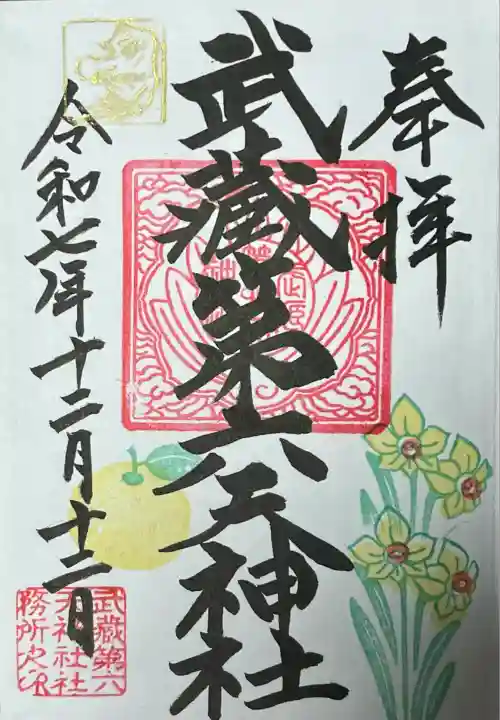 奉拝
武藏第六天神社
令和七年十二月十二日
武藏第六
天神社社
務所之印